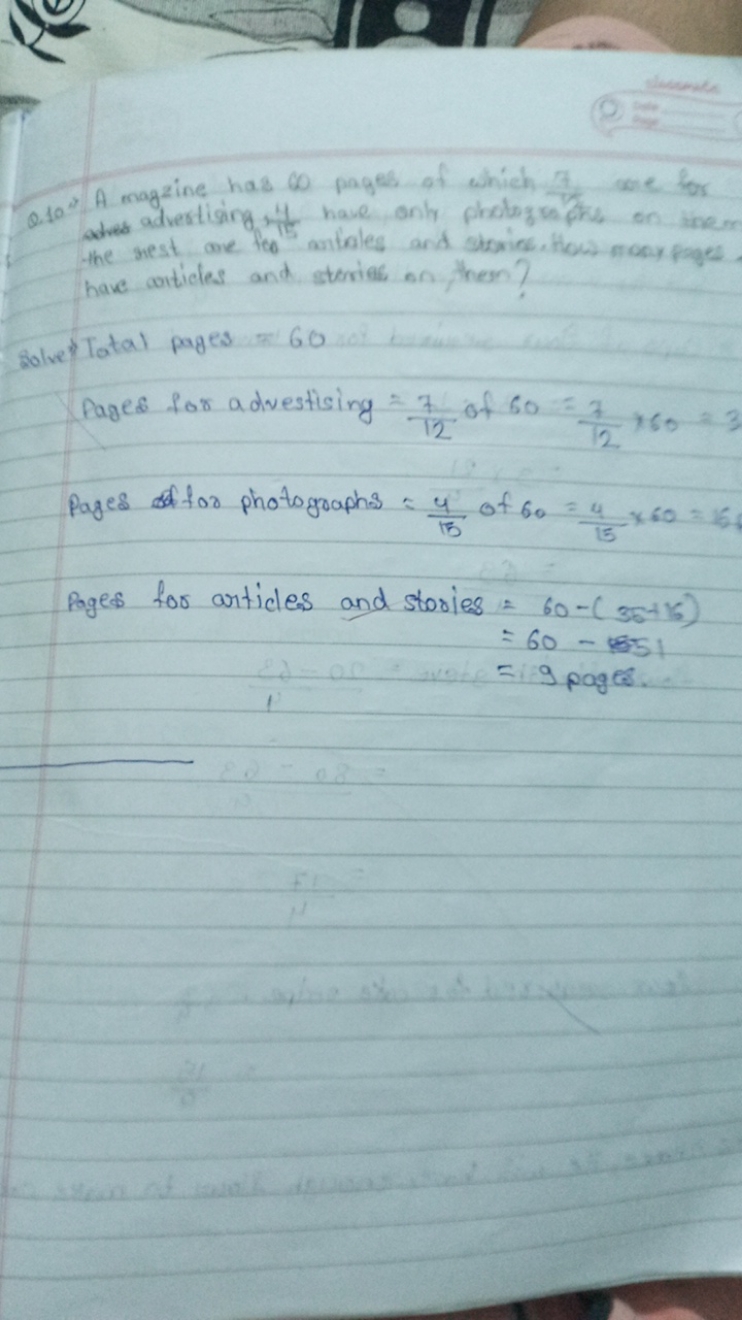 classmate
Date
Page
Q.10→ A magzine has 60 pages of which 7/12 are for
advertising, 4/15 have only photographs on them
the rest are for articles and stories. How many pages
have articles and stories on them?
Solve→ Total pages = 60
Pages for advestising = 7/12 of 60 = 7/12 × 60 = 3
Pages for photographs = 4/15 of 60 = 4/15 × 60 = 16
Pages for articles and stories = 60 - (35+16)
= 60 - 51
= 9 pages.